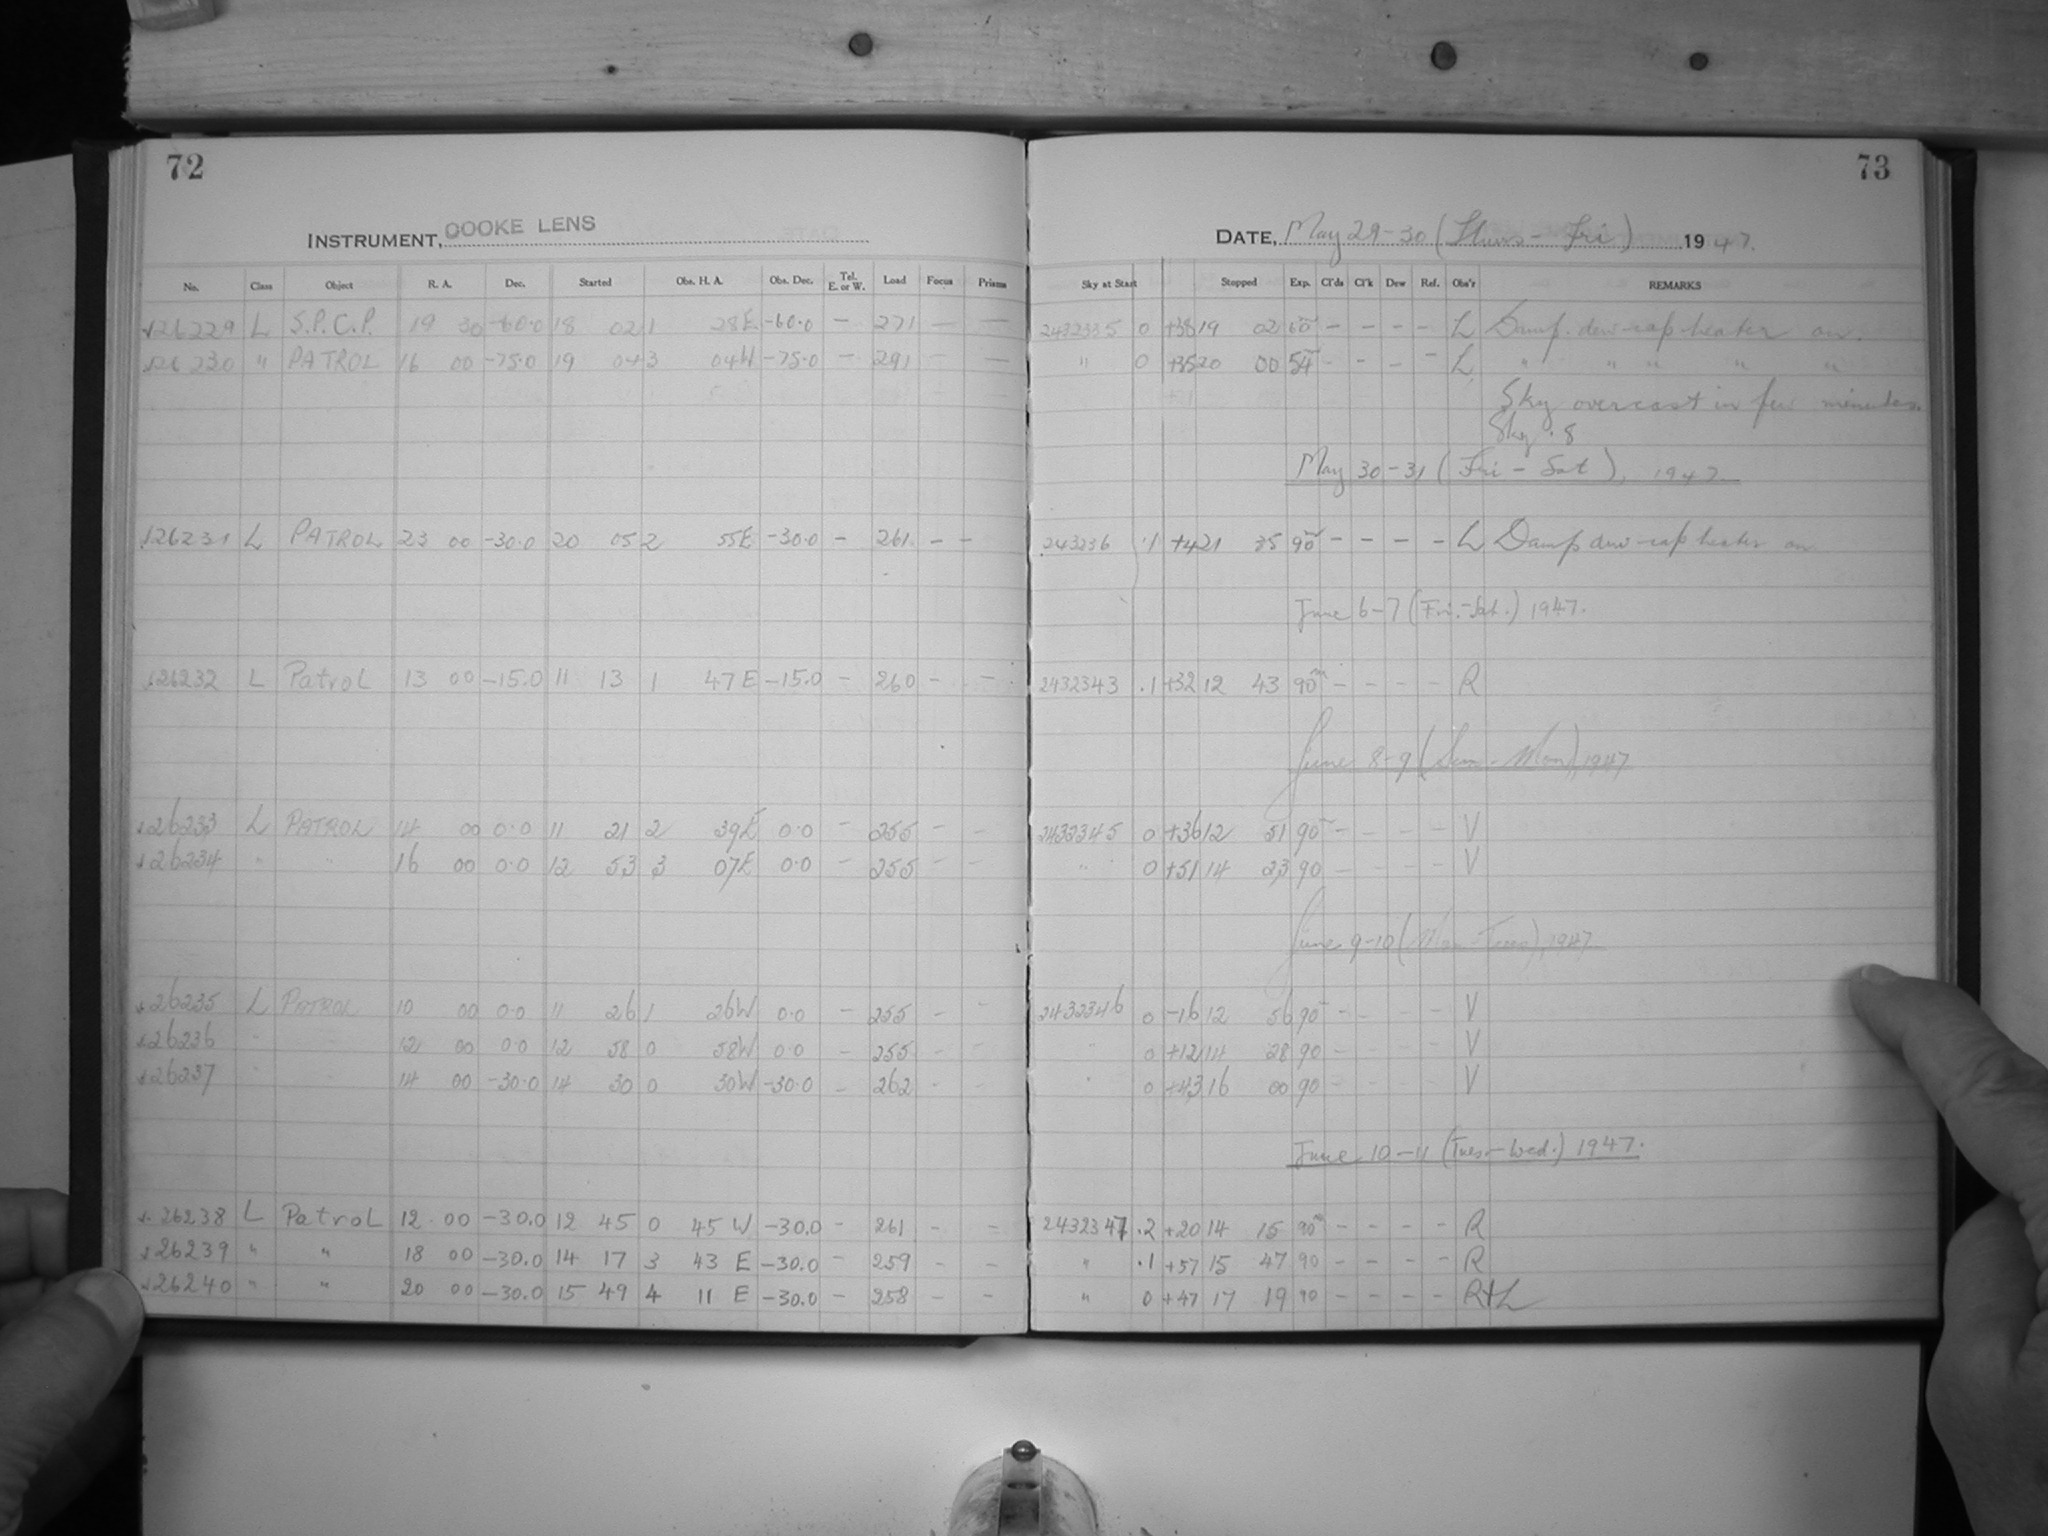 72
INSTRUMENT, COOKE LENS
No. Class Object R. A. Dec. Started Obs. H. A. Obs. Dec. Tel. E. or W. Load Focus Prisms
26229 L S.P.C.P. 19 30 -60.0 18 02 1 28E -60.0 - 271 - -
26230 " PATROL 16 00 -75.0 19 04 3 04W -75.0 - 291 - -
26231 L PATROL 23 00 -30.0 20 05 2 55E -30.0 - 261 - -
26232 L Patrol 13 00 -15.0 11 13 1 47E -15.0 - 260 - -
26233 L PATROL 14 00 0.0 11 21 2 39E 0.0 - 255 - -
26234 " " 16 00 0.0 12 53 3 07E 0.0 - 255 - -
26235 L PATROL 10 00 0.0 11 26 1 26W 0.0 - 255 - -
26236 " " 12 00 0.0 12 58 0 58W 0.0 - 255 - -
26237 " " 14 00 -30.0 14 30 0 30W -30.0 - 262 - -
26238 L Patrol 12 00 -30.0 12 45 0 45 W -30.0 - 261 - -
26239 " " 18 00 -30.0 14 17 3 43 E -30.0 - 259 - -
26240 " " 20 00 -30.0 15 49 4 11 E -30.0 - 258 - -
73
DATE, May 29-30 (Thurs - Fri) 1947.
Sky at Start Stopped Exp. Cl'ds Cl'k Dew Ref. Obs'r REMARKS
2432335 0 +38 19 02 60m - - - - L Damp. dew-cap heater on.
" 0 +35 20 00 54m - - - - L " " " " "
Sky overcast in few minutes.
Sky .8
May 30-31 (Fri - Sat), 1947.
243236 .1 +4 21 35 90m - - - - L Damp dew-cap heater on
June 6-7 (Fri.-Sat.) 1947.
2432343 .1 +32 12 43 90m - - - - R
June 8-9 (Sun - Mon), 1947
2432345 0 +36 12 51 90m - - - - V
" 0 +51 14 23 90 - - - - V
June 9-10 (Mon-Tues), 1947
2432346 0 -16 12 56 90m - - - - V
" 0 +12 14 28 90 - - - - V
" 0 +43 16 00 90 - - - - V
June 10-11 (Tues-Wed.) 1947.
2432347 .2 +20 14 15 90m - - - - R
" .1 +57 15 47 90 - - - - R
" 0 +47 17 19 90 - - - - R+L